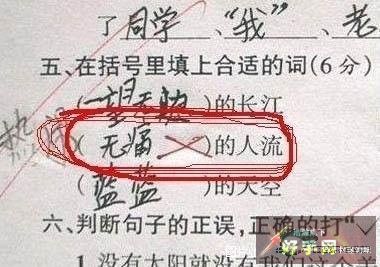 了同学、“我”、老
五、在括号里填上合适的词(6分)
(一望无边)的长江
(无痛)的人流
(蓝蓝)的天空
六、判断句子的正误,正确的打“√
1.没有太阳就没有我们这个美
好手网